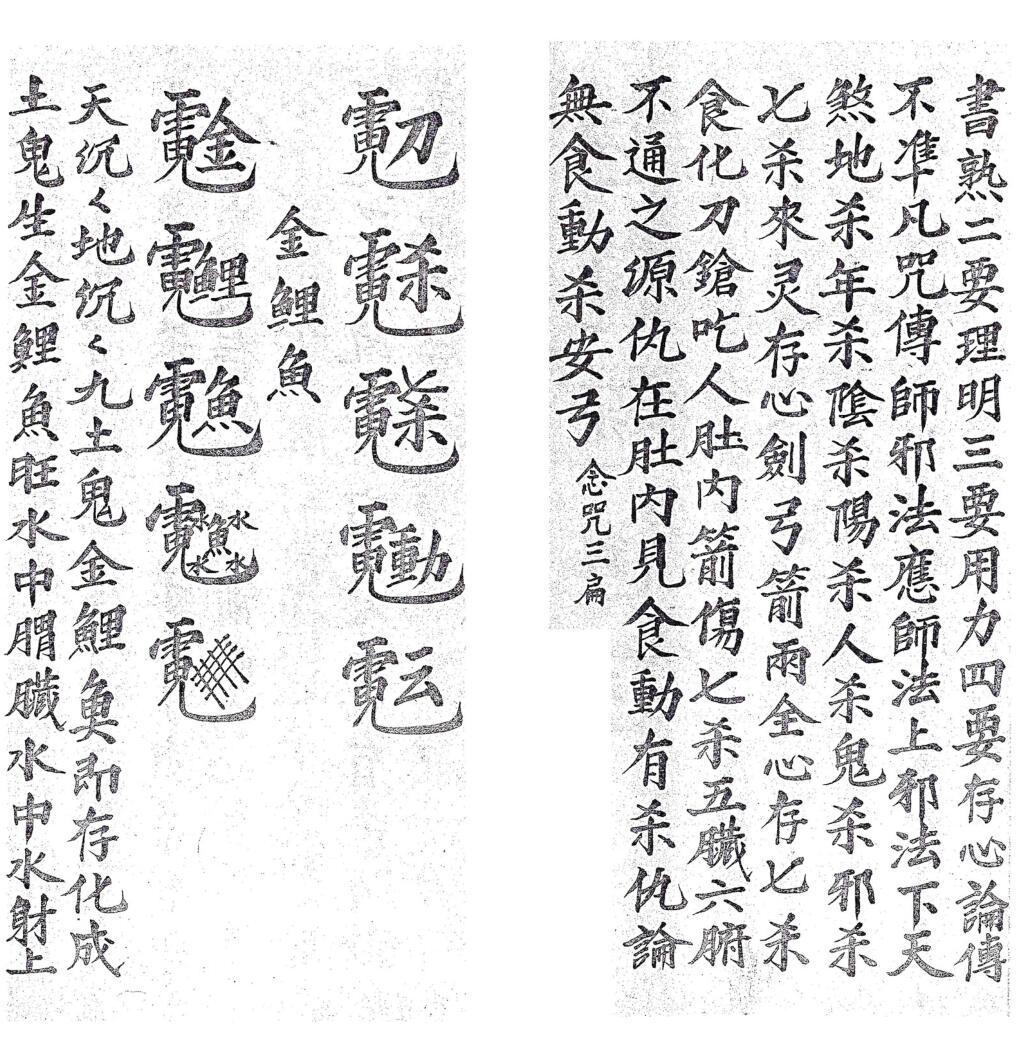 書熟二要理明三要用力四要存心論傳
不準凡咒傳師邪法應師法上邪法下天
煞地杀年杀陰杀陽杀人杀鬼杀邪杀
七杀來灵存心劍弓箭兩全心存七杀
食化刀鎗吃人肚内箭傷七杀五臓六腑
不通之源仇在肚内見食動有杀仇論
無食動杀安弓 念咒三扁
金鯉魚
天沉〻地沉〻九土鬼金鯉魚即存化成
土鬼生金鯉魚旺水中腭臓水中水射上